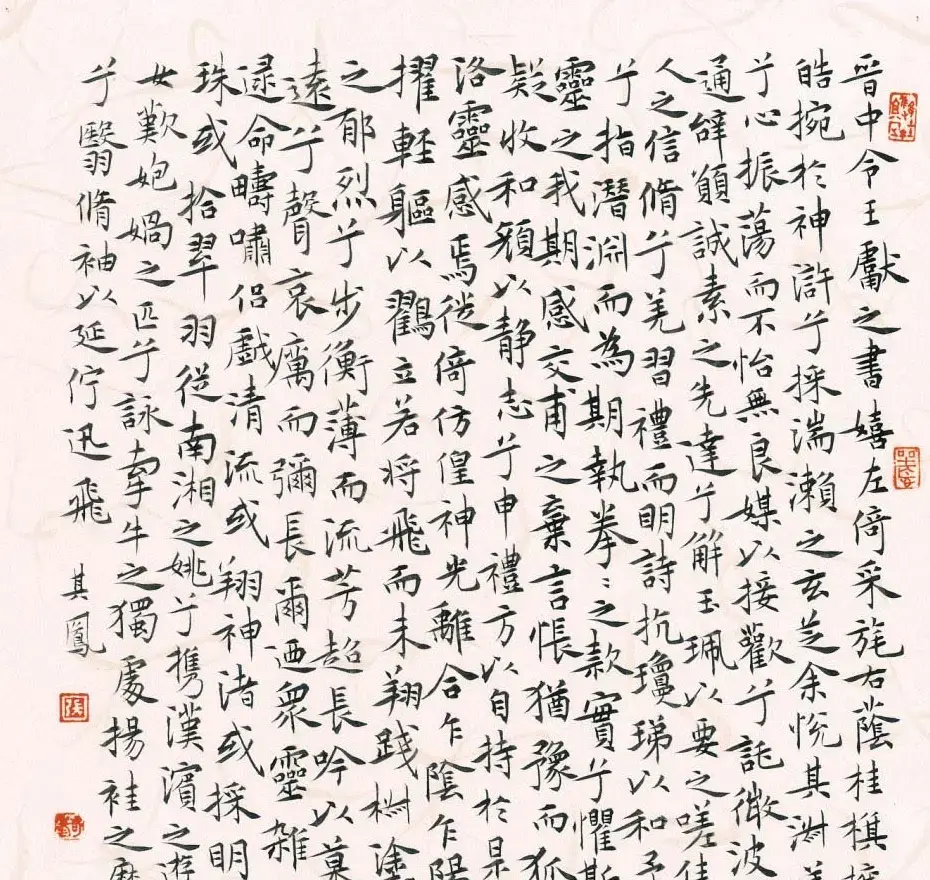 晉中令王獻之書嬉左倚采旄右蔭桂旗
皓捥於神滸兮採湍瀨之玄芝余悅其淑美
兮心振蕩而不怡無良媒以接歡兮託微波
通辭願誠素之先達兮解玉珮以要之嗟佳
人之信脩兮羌習禮而明詩抗瓊珶以和予
兮指潛淵而為期執拳〻之款實兮懼斯
靈之我期感交甫之棄言悵猶豫而狐
疑收和顏以靜志兮申禮方以自持於是
洛靈感焉徙倚仿偟神光離合乍陰乍陽
擢輕軀以鶴立若将飛而未翔踐椒塗
之郁烈兮步衡薄而流芳超長吟以慕
遠兮聲哀厲而彌長爾迺眾靈雜
逯命疇嘯侶戲清流或翔神渚或採明
珠或拾翠羽從南湘之姚兮携漢濱之遊
女歎媧之匹兮詠牽牛之獨處揚袿之靡
兮翳脩袖以延佇迅飛 其鳳